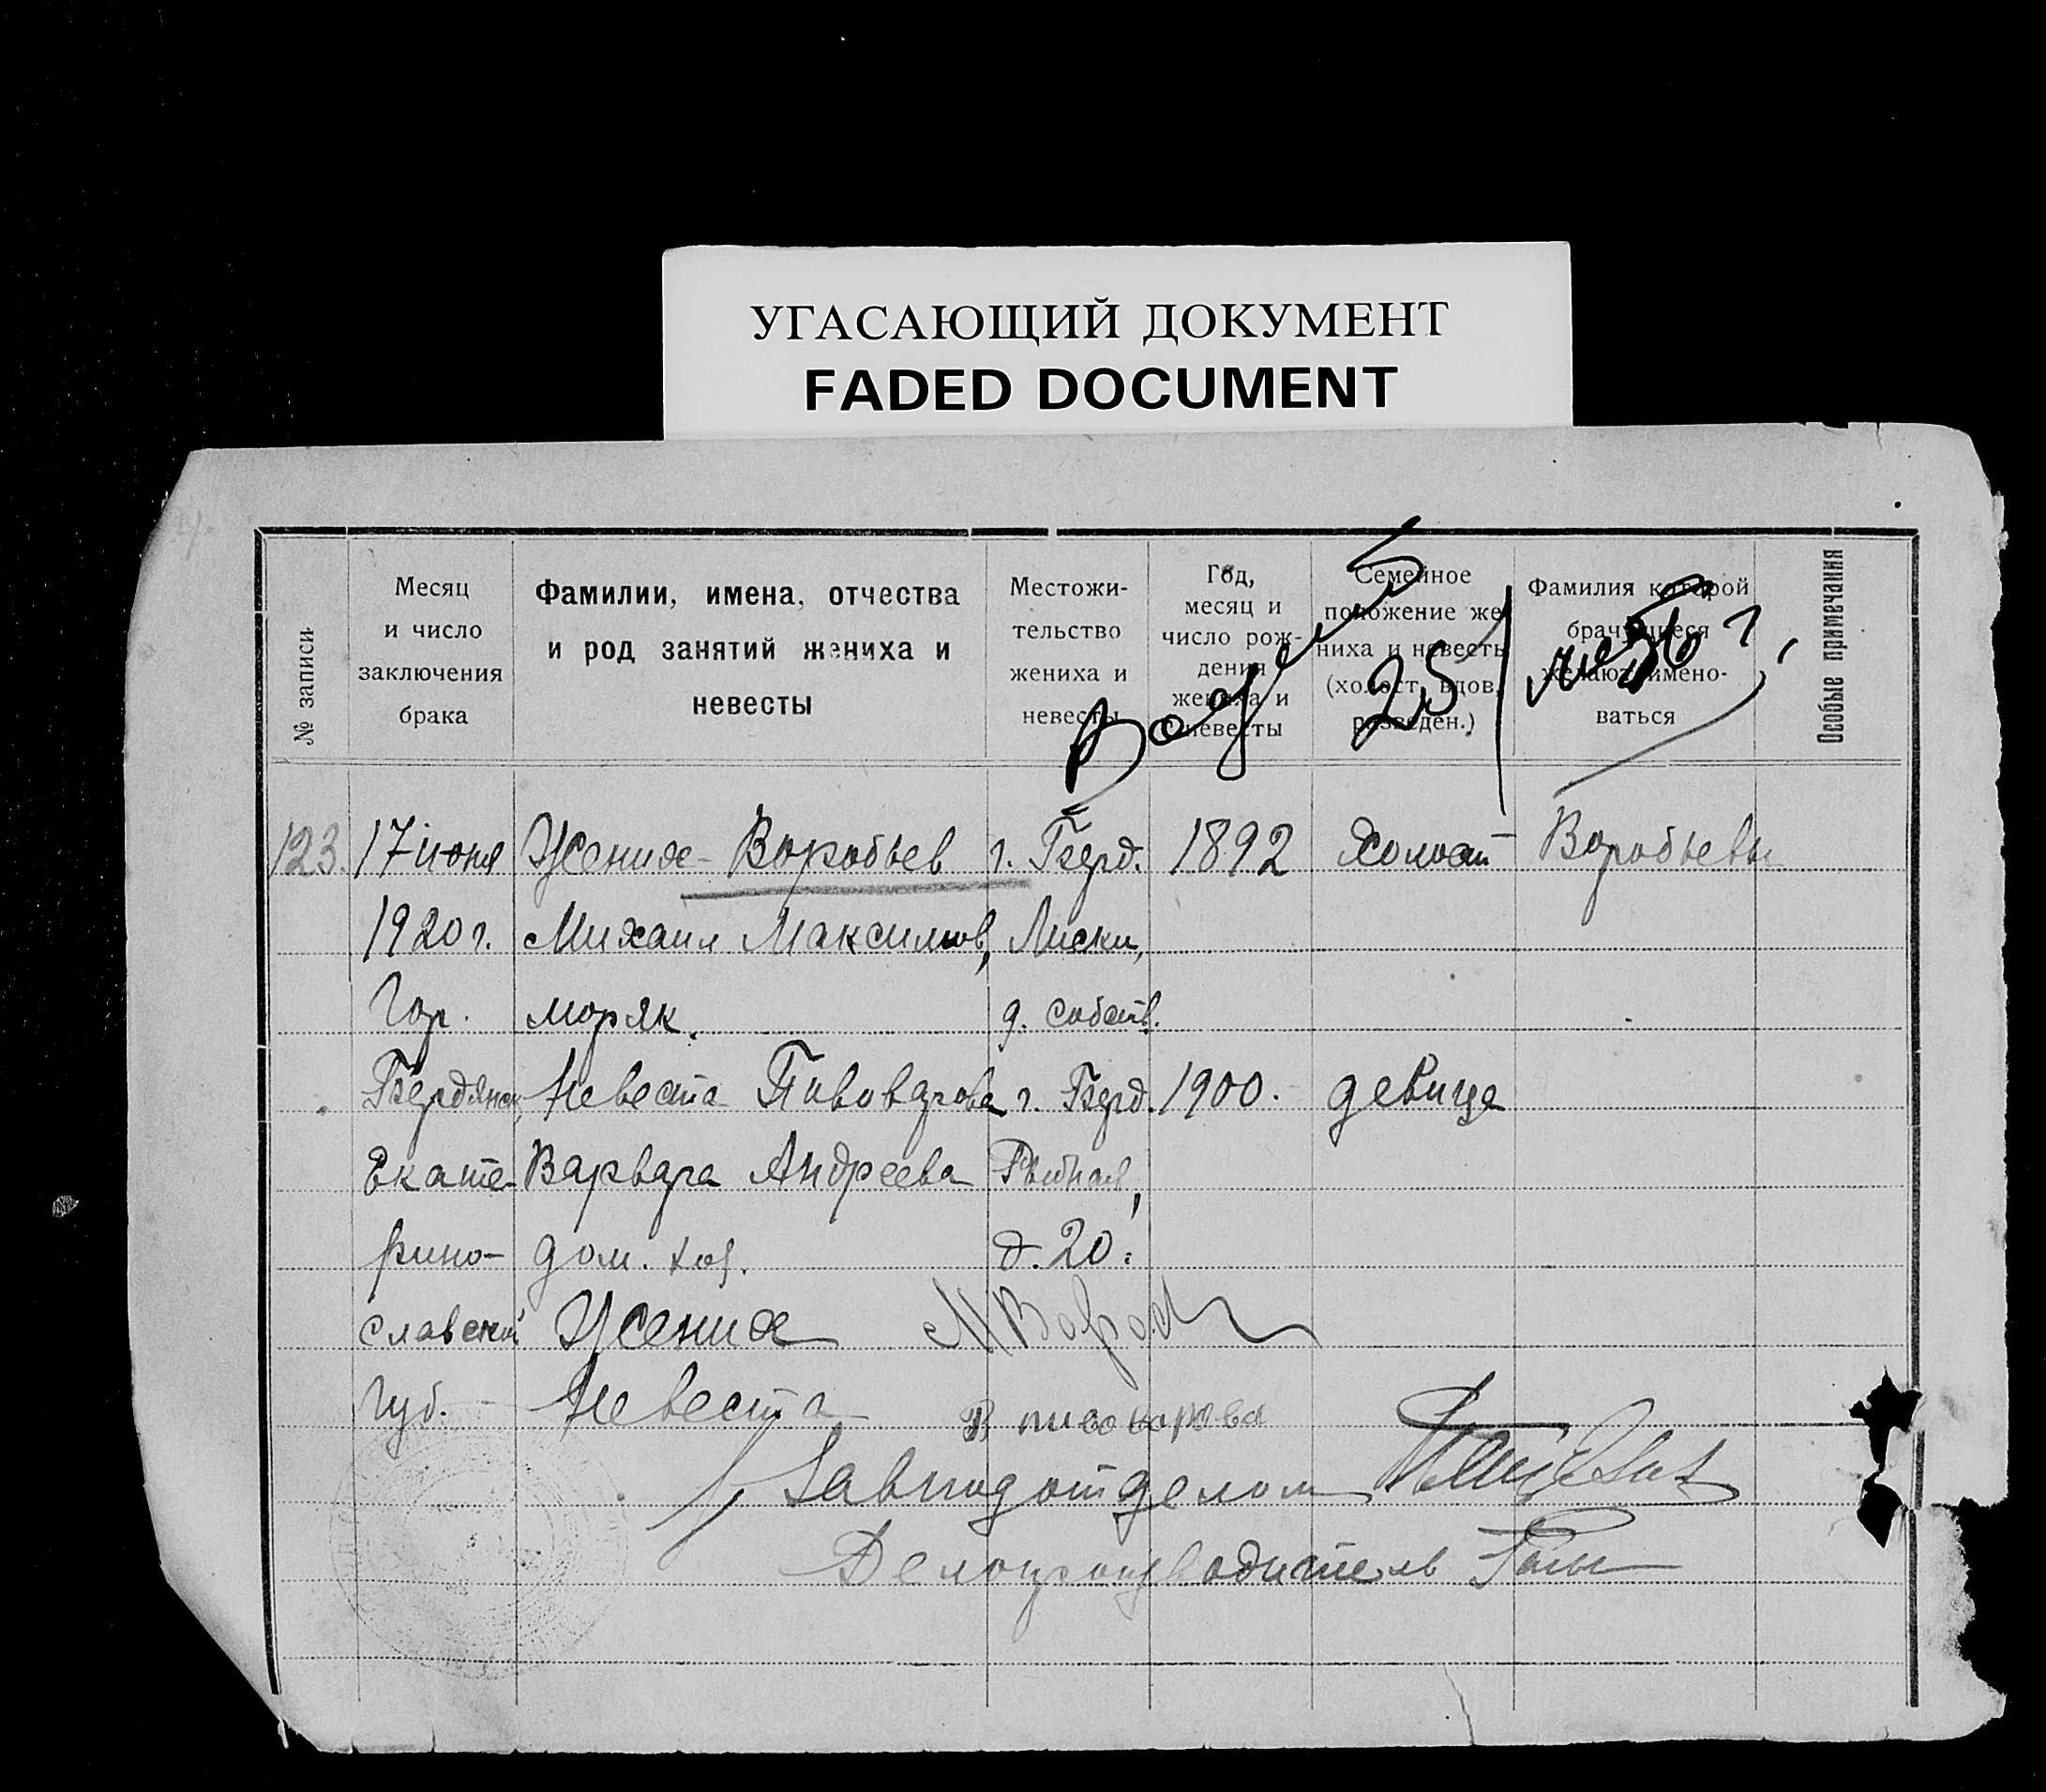 УГАСАЮЩИЙ ДОКУМЕНТ
FADED DOCUMENT
№ записи
Месяц
и число
заключения
брака
Фамилии, имена, отчества
и род занятий жениха и
невесты
Местожи-
тельство
жениха и
невесты
Год,
месяц и
число рож-
дения
жениха и
невесты
Семейное
положение же
ниха и невесты
(холост, вдов.
разведен.)
Фамилия которой
брачущиеся
желают имено-
ваться
Особые примечания
25/
123. 17 июня Жених - Воробьев г. Берд. 1892 Холост Воробьевы
1920 г. Михаил Максимов, Лиски,
Гор. моряк. д. собств.
Бердянск, Невеста Пивоварова г. Берд. 1900. девица
Екате- Варвара Андреева Рыбная,
рино- дом. хоз. д. 20.
славской Жених
Губ. Невеста В пивоварова
Завподотделом
Делопроизводитель